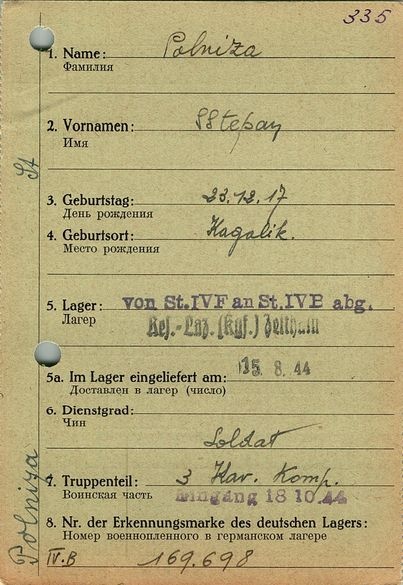 335
1. Name: Polniza
Фамилия
2. Vornamen: SStepan
Имя
3. Geburtstag: 23.12.17
День рождения
4. Geburtsort: Kagalik.
Место рождения
5. Lager: von St.IVF an St.IVB abg.
Лагер
Res.-Laz.(Kgf.) Zeithain
5a. Im Lager eingeliefert am: 15. 8. 44
Доставлен в лагер (число)
6. Dienstgrad:
Чин
Soldat
7. Truppenteil: 3 Kav. Komp.
Воинская часть Eingang 18 10.44
8. Nr. der Erkennungsmarke des deutschen Lagers:
Номер военнопленного в германском лагере
IV.B 169.698
Polniza St